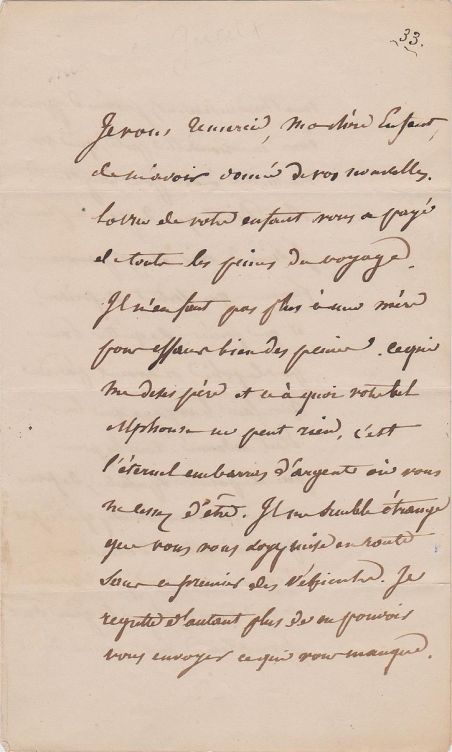 33.
Je vous remercie, ma chère Enfant,
de m'avoir donné de vos nouvelles.
la vue de votre enfant vous a payé
de toutes les peines du voyage.
Il n'en faut pas plus à une mère
pour effacer bien des peines. ce qui
me désespère et à quoi votre bel
Alphonse ne peut rien, c'est
l'éternel embarras d'argent où vous
ne cessez d'être. Il me semble étrange
que vous vous soyez mise en route
sans
des Véhicules. Je
regrette d'autant plus de ne pouvoir
vous envoyer ce qui vous manque.